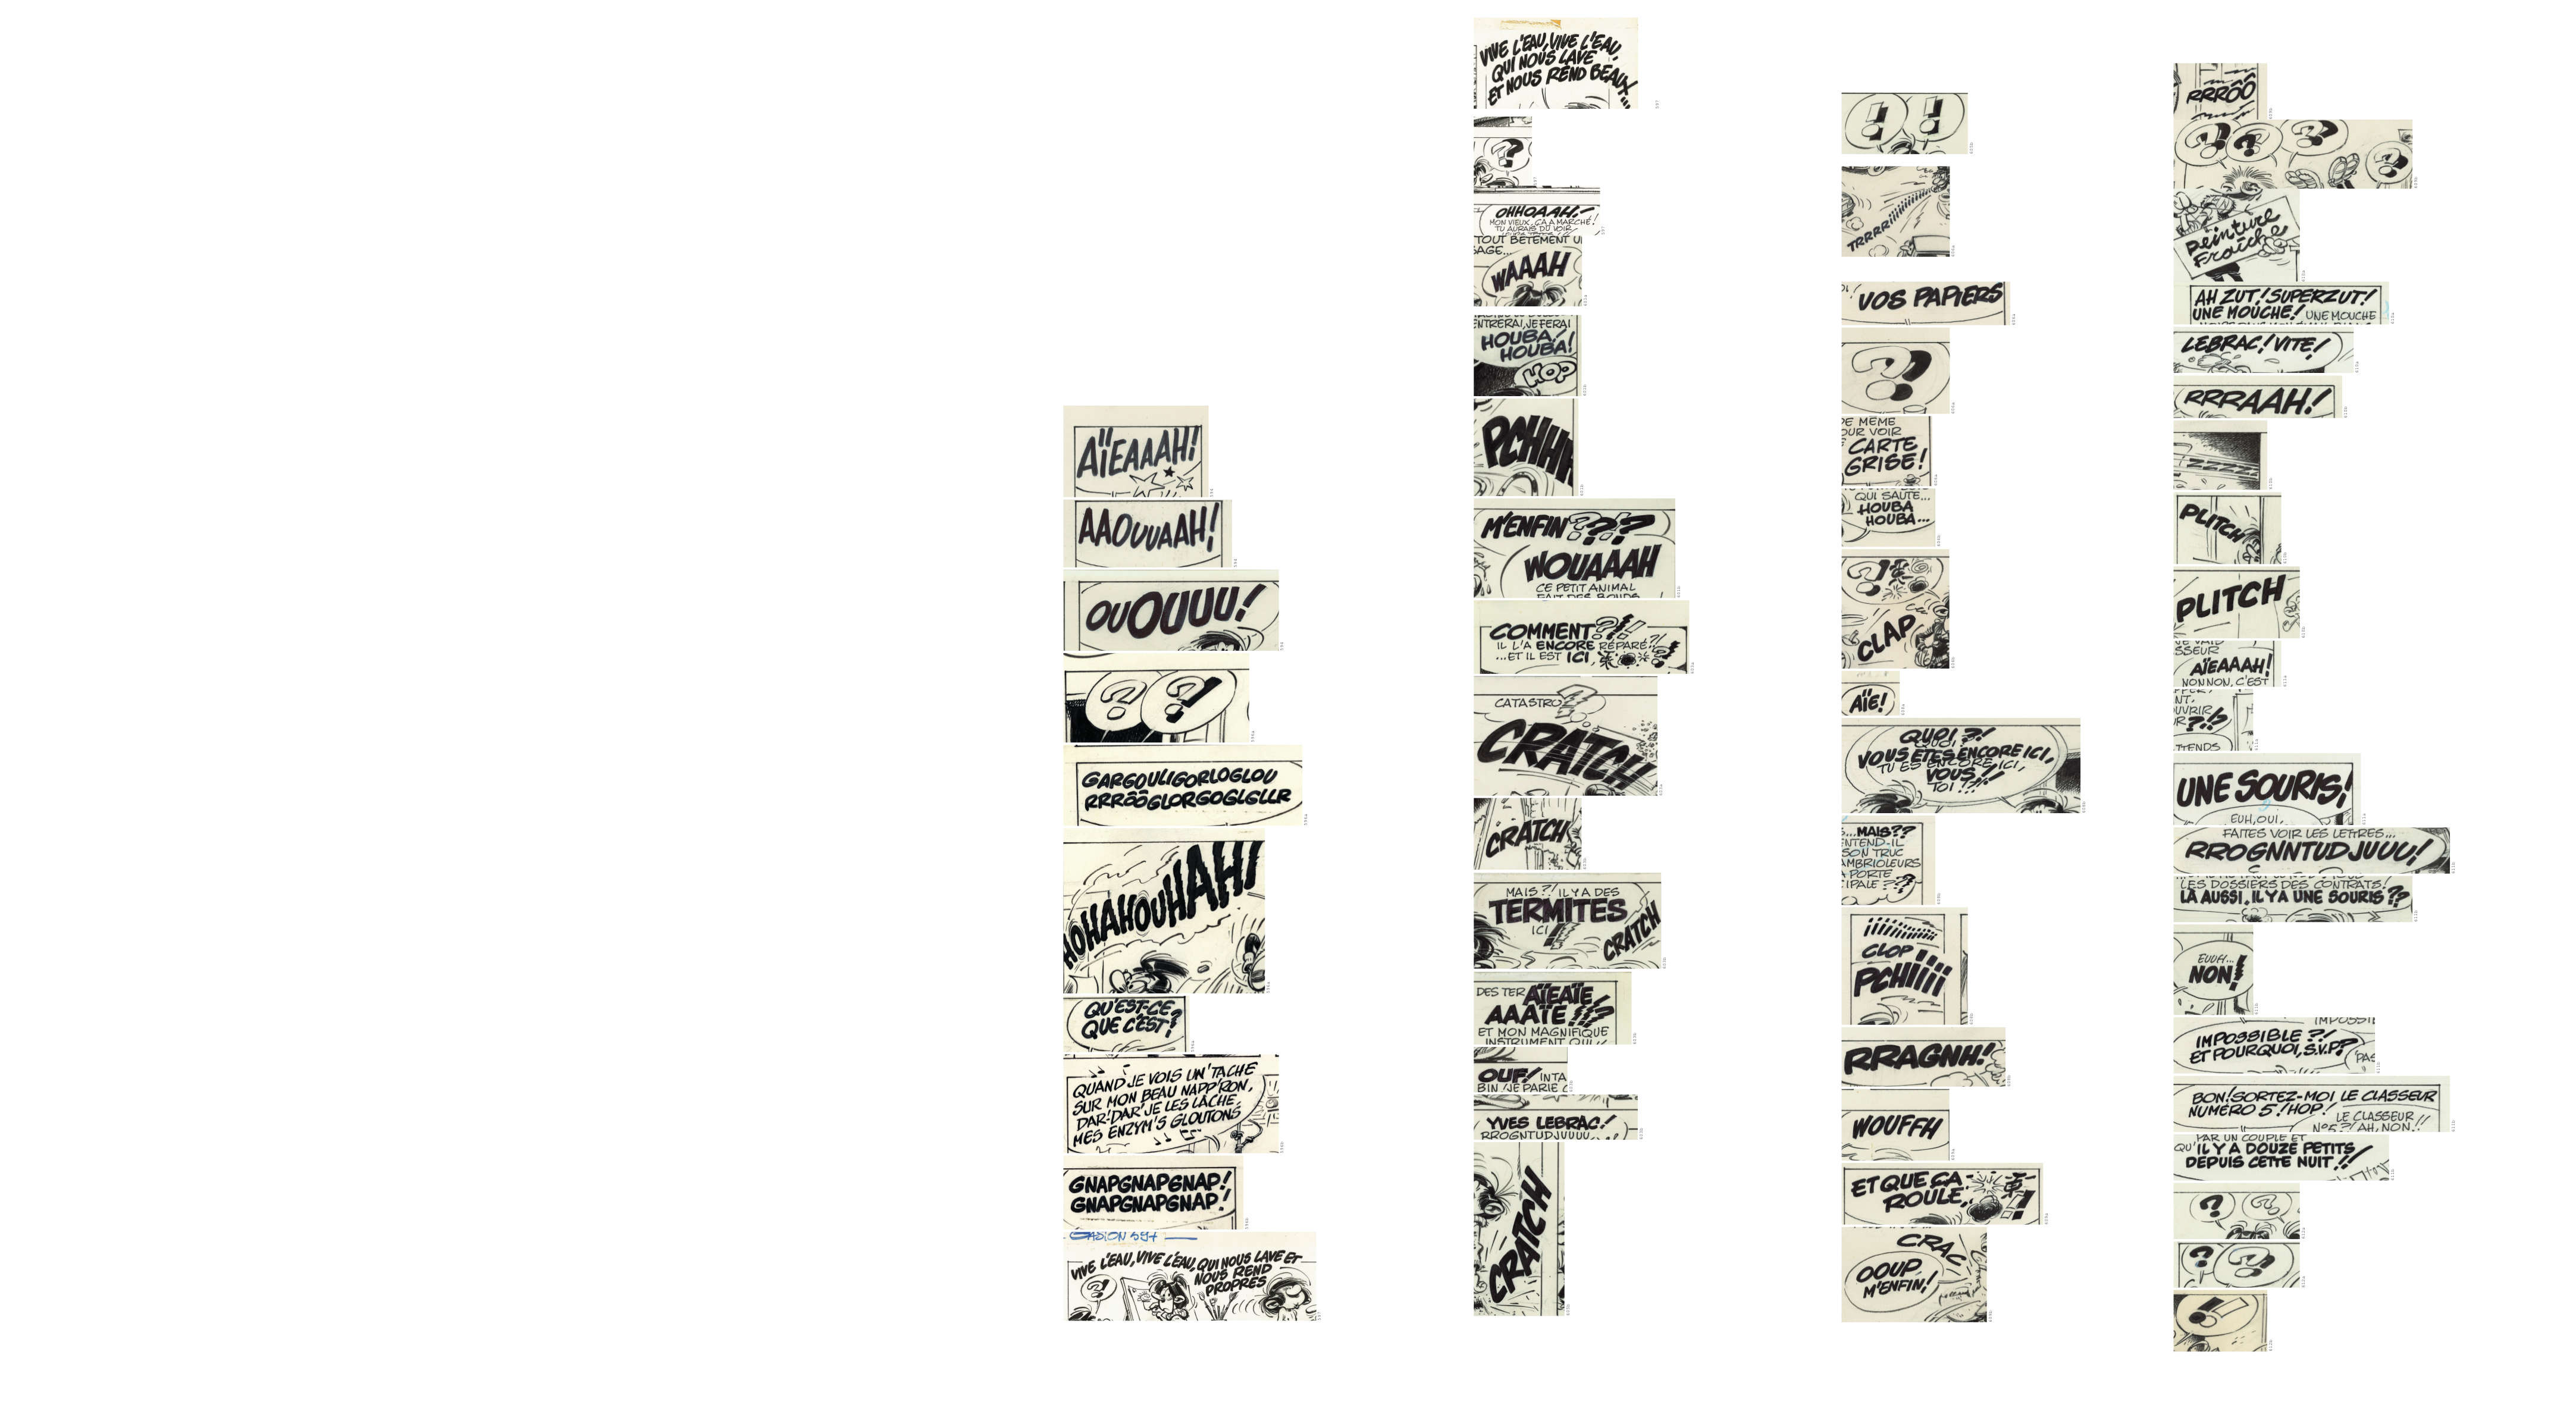 AÏEAAAH!
AAOUUAAH!
OUOUUUU!
? ?
GARGOULIGORLOGLOU
RRRÔÔGLORGOGLGLLR
HOHAHOUHAH!
QU'EST-CE
QUE C'EST?
QUAND JE VOIS UN'TACHE
SUR MON BEAU NAPP'RON,
DAR'DAR'JE LES LÂCHE,
MES ENZYM'S GLOUTONS
GNAPGNAPGNAP!
GNAPGNAPGNAP!
GASTON 597
VIVE L'EAU, VIVE L'EAU, QUI NOUS LAVE ET
NOUS REND
PROPRES
?
VIVE L'EAU, VIVE L'EAU,
QUI NOUS LAVE
ET NOUS REND BEAUX...
?
OHHOAAH!
MON VIEUX, ÇA A MARCHÉ!
TU AURAIS DÛ VOIR
TOUT BÊTEMENT U
SAGE...
WAAAH
ENTRERAI, JE FERAI
HOUBA!
HOUBA!
HOP
PCHHH
M'ENFIN???
WOUAAAH
CE PETIT ANIMAL
FAIT DES BONDS
COMMENT?!!
IL L'A ENCORE RÉPARÉ?!
...ET IL EST ICI,
CATASTRO
CRATCH
CRATCH
MAIS?! IL Y A DES
TERMITES
ICI
CRATCH
DES TER AÏEAÏE
AAAÏE!!?
ET MON MAGNIFIQUE
INSTRUMENT QUI
OUF! INTA
BIN! JE PARIE
YVES LEBRAC!
RROGNTUDJUUU
CRATCH
! !
TRRRRIIIIIIIIII
VOS PAPIERS
?
DE MÊME
OUR VOIR
CARTE
GRISE!
QUI SAUTE...
HOUBA
HOUBA...
?!
CLAP
AÏE!
QUOI?!
VOUS ÊTES ENCORE ICI,
TU ES ENCORE ICI,
VOUS!!
TOI?!!
...MAIS??
ENTEND-IL
SON TRUC
AMBRIOLEURS
A PORTE
CIPALE??
IIIIIIIIIIII
CLOP
PCHIIII
RRAGNH!
WOUFFH
ET QUE ÇA
ROULE,
CRAC
OOUP
M'ENFIN!
RRRÔÔ
? ? ? ?
Peinture
Fraîche
AH ZUT! SUPERZUT!
UNE MOUCHE! UNE MOUCHE
LEBRAC! VITE!
RRRAAH!
ZZZZ
PLITCH
PLITCH
JE VAIS
SSEUR
AÏEAAAH!
NON NON, C'EST
NT,
UVRIR
R?!!?
TTENDS
UNE SOURIS!
EUH, OUI,
FAITES VOIR LES LETTRES...
RROGNNTUDJUUU!
LES DOSSIERS DES CONTRATS!
LÀ AUSSI, IL Y A UNE SOURIS??
EUUH...
NON!
IMPOSSI
IMPOSSIBLE?!
ET POURQUOI, S.V.P?
PAS
BON! SORTEZ-MOI LE CLASSEUR
NUMÉRO 5! HOP!
LE CLASSEUR
N°5?! AH, NON!!
PAR UN COUPLE ET
QU'IL Y A DOUZE PETITS
DEPUIS CETTE NUIT!!
? ?
? ?
!